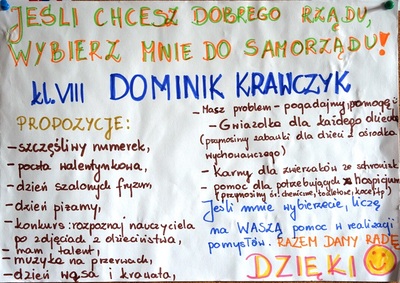 JEŚLI CHCESZ DOBREGO RZĄDU,
WYBIERZ MNIE DO SAMORZĄDU!
kl. VIII DOMINIK KRAWCZYK
PROPOZYCJE:
- szczęśliwy numerek,
- poczta walentynkowa,
- dzień szalonych fryzur,
- dzień piżamy,
- konkurs: rozpoznaj nauczyciela
po zdjęciach z dzieciństwa,
- mam talent,
- muzyka na przerwach,
- dzień wąsa i krawata,
- Masz problem - pogadajmy, pomogę
- Gwiazdka dla każdego dziecka
(przynosimy zabawki dla dzieci z ośrodka
wychowawczego)
- Karmy dla zwierzaków ze schronisk
- pomoc dla potrzebujących z hospicjum
(przynosimy śr. higieniczne, toaletowe, koce itp.)
Jeśli mnie wybierzecie, liczę
na WASZĄ pomoc w realizacji
pomysłów. RAZEM DAMY RADĘ
DZIĘKI